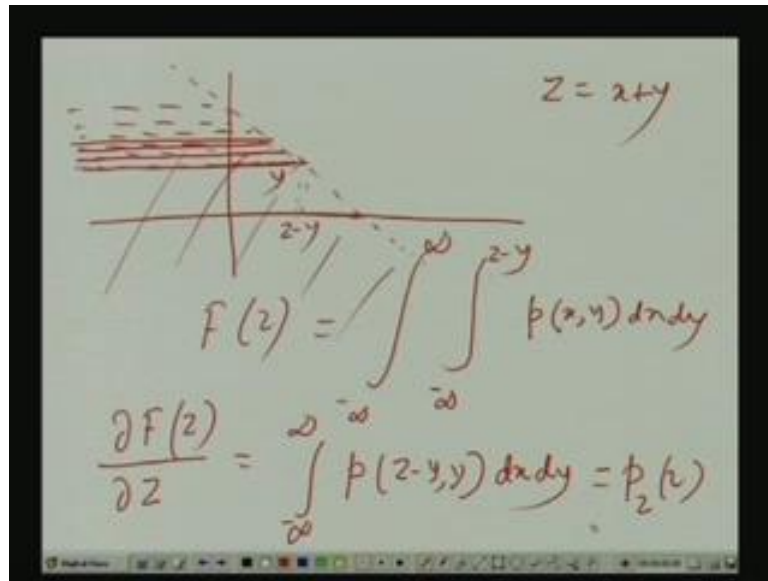 z = x+y
y
z-y
F(z) = ∫_{-∞}^{∞} ∫_{-∞}^{z-y} p(x,y) dx dy
∂F(z)/∂z = ∫_{-∞}^{∞} p(z-y,y) dx dy = p_z(z)